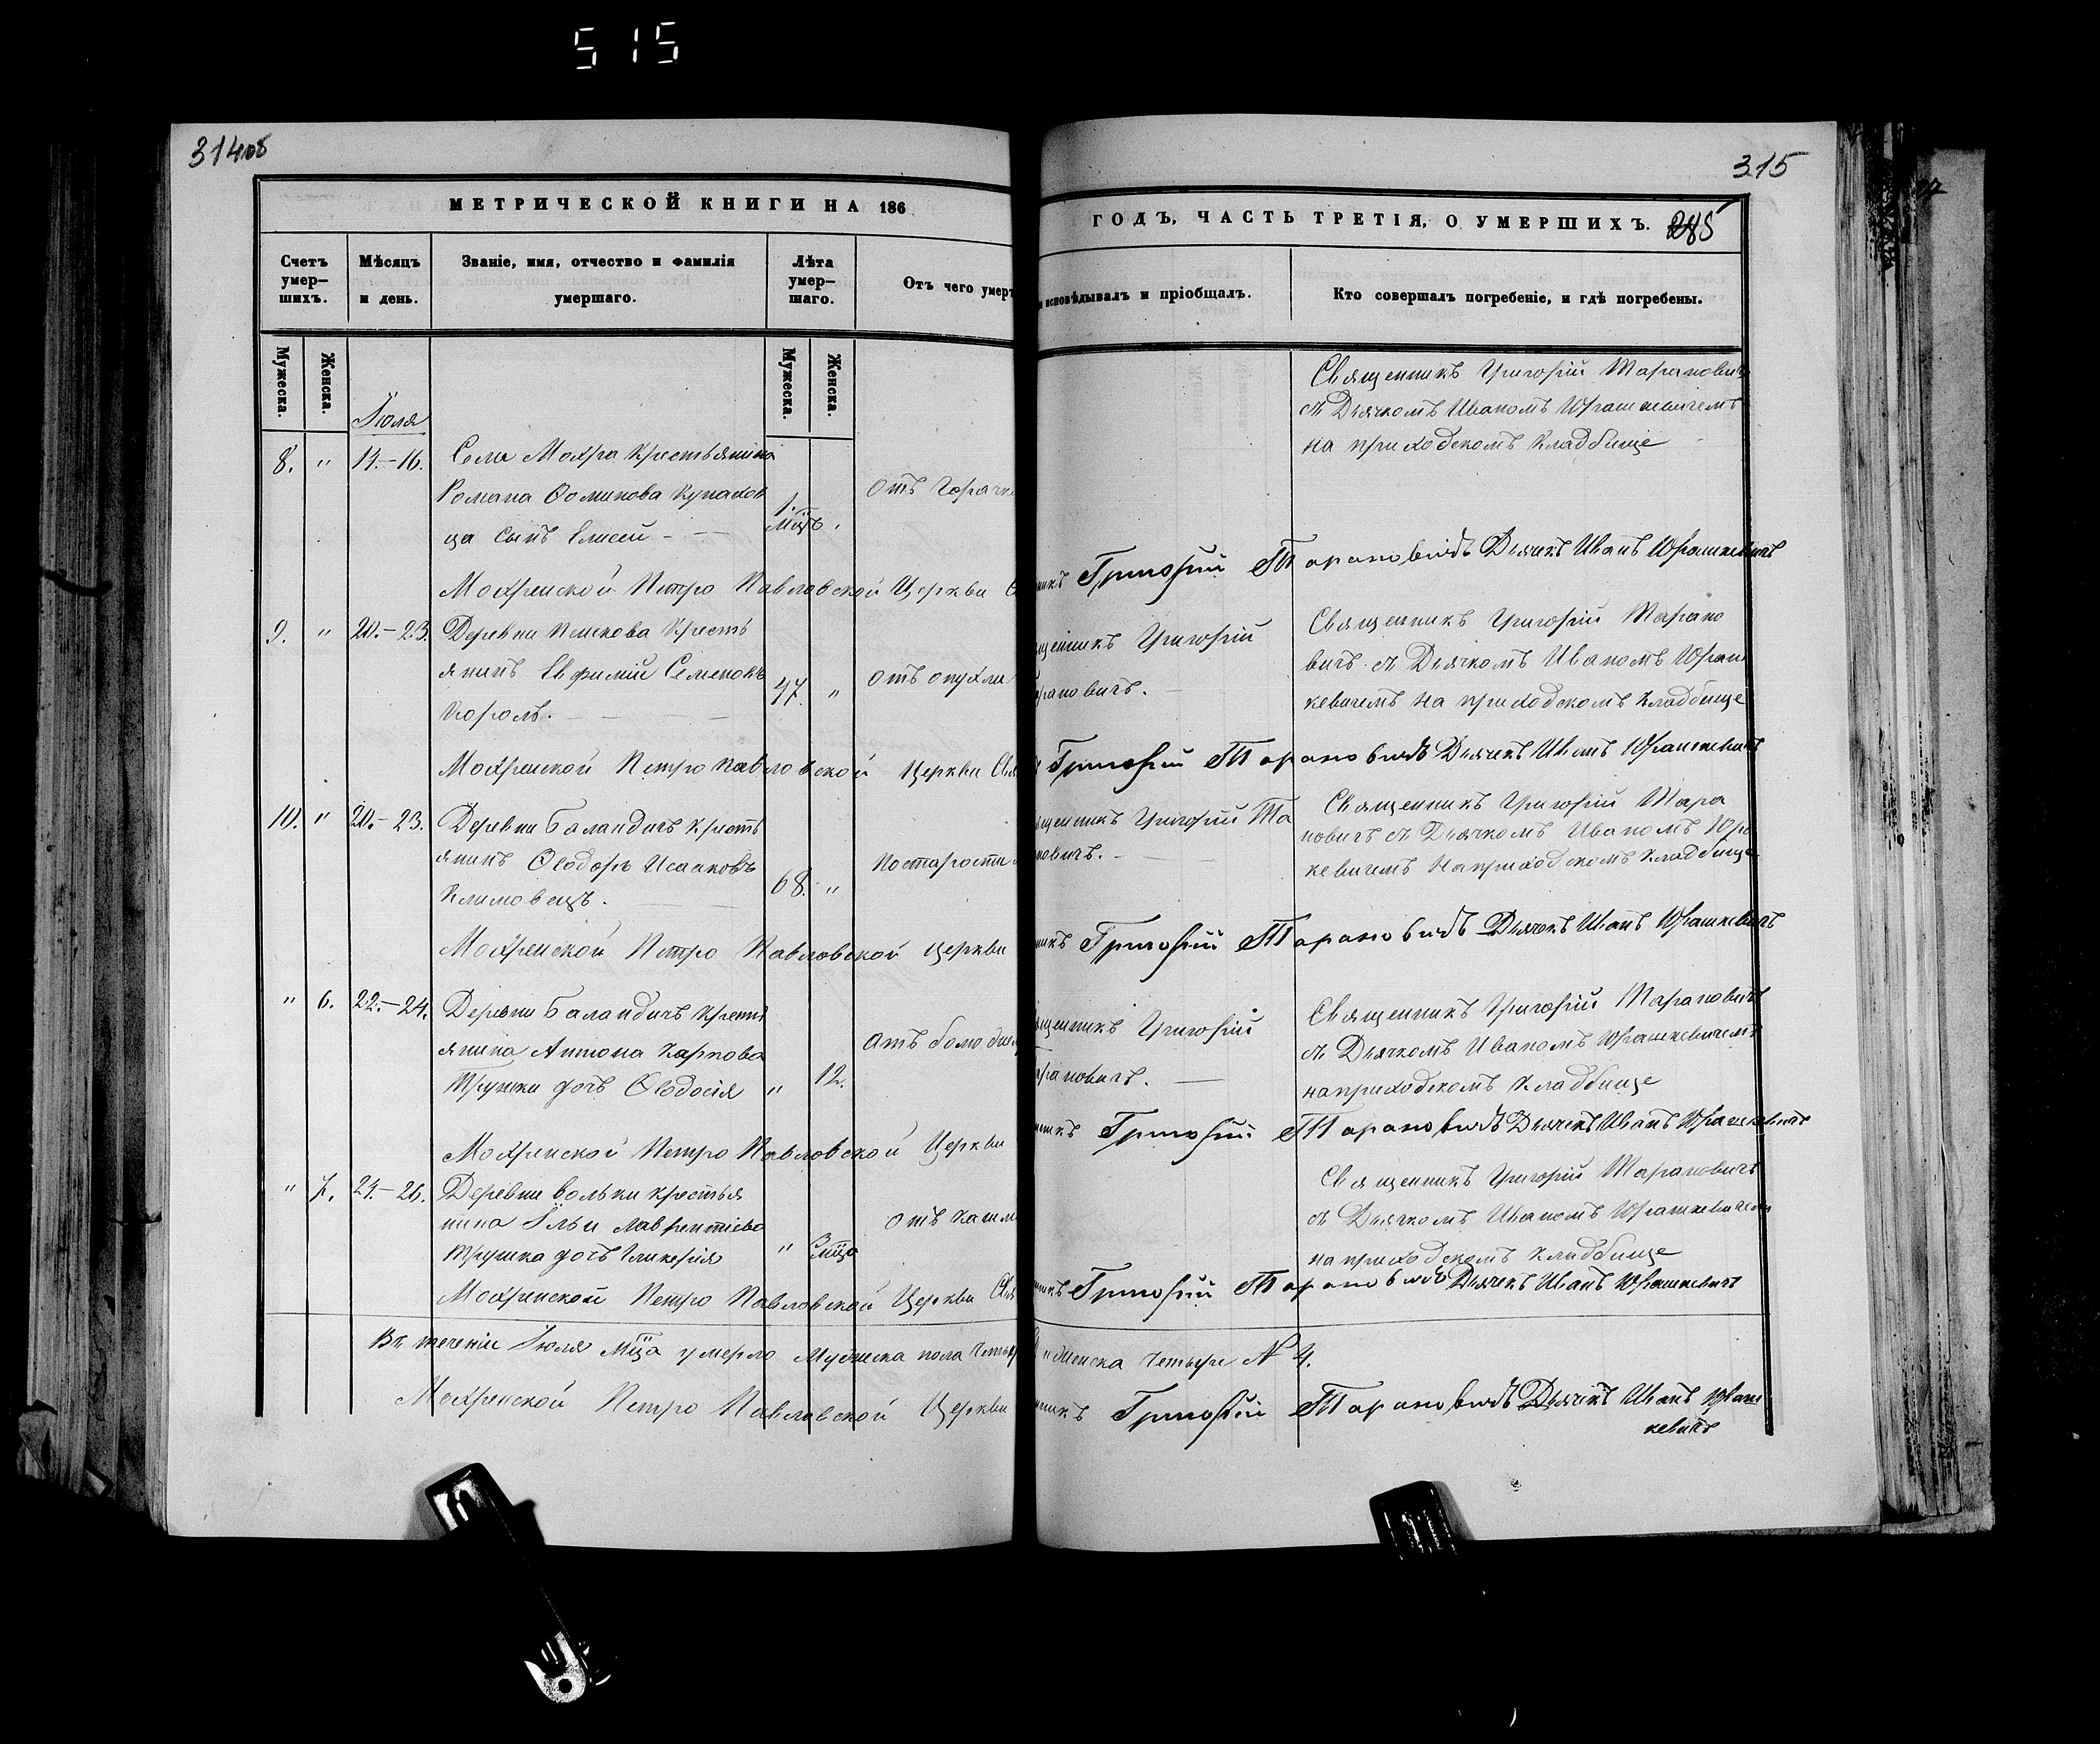 515
314об
МЕТРИЧЕСКОЙ КНИГИ НА 186
Счетъ умер–шихъ.
Мѣсяцъ и день.
Званіе, имя, отчество и фамилія умершаго.
Лѣта умер–шаго.
Отъ чего умер
Мужеска.
Женска.
Мужеска.
Женска.
Іюля
8. " 14.–16. Села Мохра Крестьянина
Романа Ѳомина
ца сынъ Елисей – 1. мцъ.
Мохренской Петро Павловской Церкви
9. " 20.–23. Деревни Крестъ
янинъ Евфимій Семеновъ 47. " отъ опухли
Король.
Мохренской Петро Павловской Церкви Свя
10. " 20.–23. Деревни Баландичъ Кресть
янинъ Ѳеодоръ Исааковъ 68. " по старости
Климовецъ.
Мохренской Петро Павловской Церкви
" 6. 22.–24. Деревни Баландичъ Кресть
янина Антона Карпова
Трушки дочь Ѳеодосія " 12.
Мохренской Петро Павловской Церкви
" 7. 24.–26. Деревни Вольки крестья
нина Ильи Лаврентіева отъ кашл
Трушка дочь Гликерія " 3 мца
Мохренской Петро Павловской Церкви Свя
Въ теченіи Іюля мца умерло Мужеска пола Четыр
Мохренской Петро Павловской Церкви
315
ГОДЪ, ЧАСТЬ ТРЕТІЯ, О УМЕРШИХЪ. 285
исповѣдывалъ и пріобщалъ.
Кто совершалъ погребеніе, и гдѣ погребены.
Священникъ Григорій Тарановичъ
съ Дьячкомъ Иваномъ Юрашкевичемъ
на приходскомъ кладбище
никъ Григорій Тарановичъ Дьячекъ Иванъ Юрашкевичъ
щенникъ Григорій
арановичъ.
Священникъ Григорій Тарано
вичъ съ Дьячкомъ Иваномъ Юраш
кевичемъ на приходскомъ кладбище
Григорій Тарановичъ Дьячекъ Иванъ Юрашкевичъ
щенникъ Григорій Та
новичъ.
Священникъ Григорій Тара
новичъ съ Дьячкомъ Иваномъ Юра
кевичемъ на приходскомъ кладбище
никъ Григорій Тарановичъ Дьячекъ Иванъ Юрашкевичъ
щенникъ Григорій
арановичъ.
Священникъ Григорій Тарановичъ
съ Дьячкомъ Иваномъ Юрашкевичемъ
на приходскомъ кладбище
никъ Григорій Тарановичъ Дьячекъ Иванъ Юрашкевичъ
Священникъ Григорій Тарановичъ
съ Дьячкомъ Иваномъ Юрашкевичем
на приходскомъ кладбище
никъ Григорій Тарановичъ Дьячекъ Иванъ Юрашкевичъ
Женска Четыре N 4.
никъ Григорій Тарановичъ Дьячекъ Иванъ Юраш
кевичъ